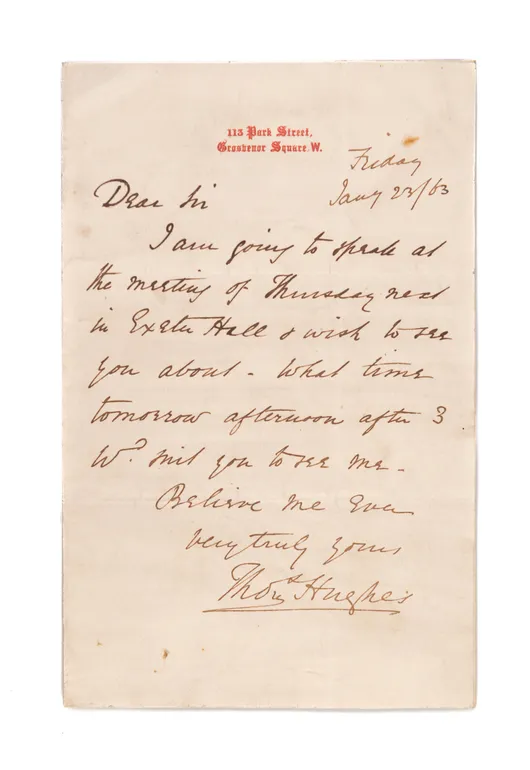 113 Park Street,
Grosvenor Square. W.
Friday
Jany 23/63
Dear Sir
I am going to speak at
the meeting of Thursday next
in Exeter Hall & wish to see
you about - What time
tomorrow afternoon after 3
Wd. suit you to see me -
Believe me Ever
very truly yours
Thos Hughes